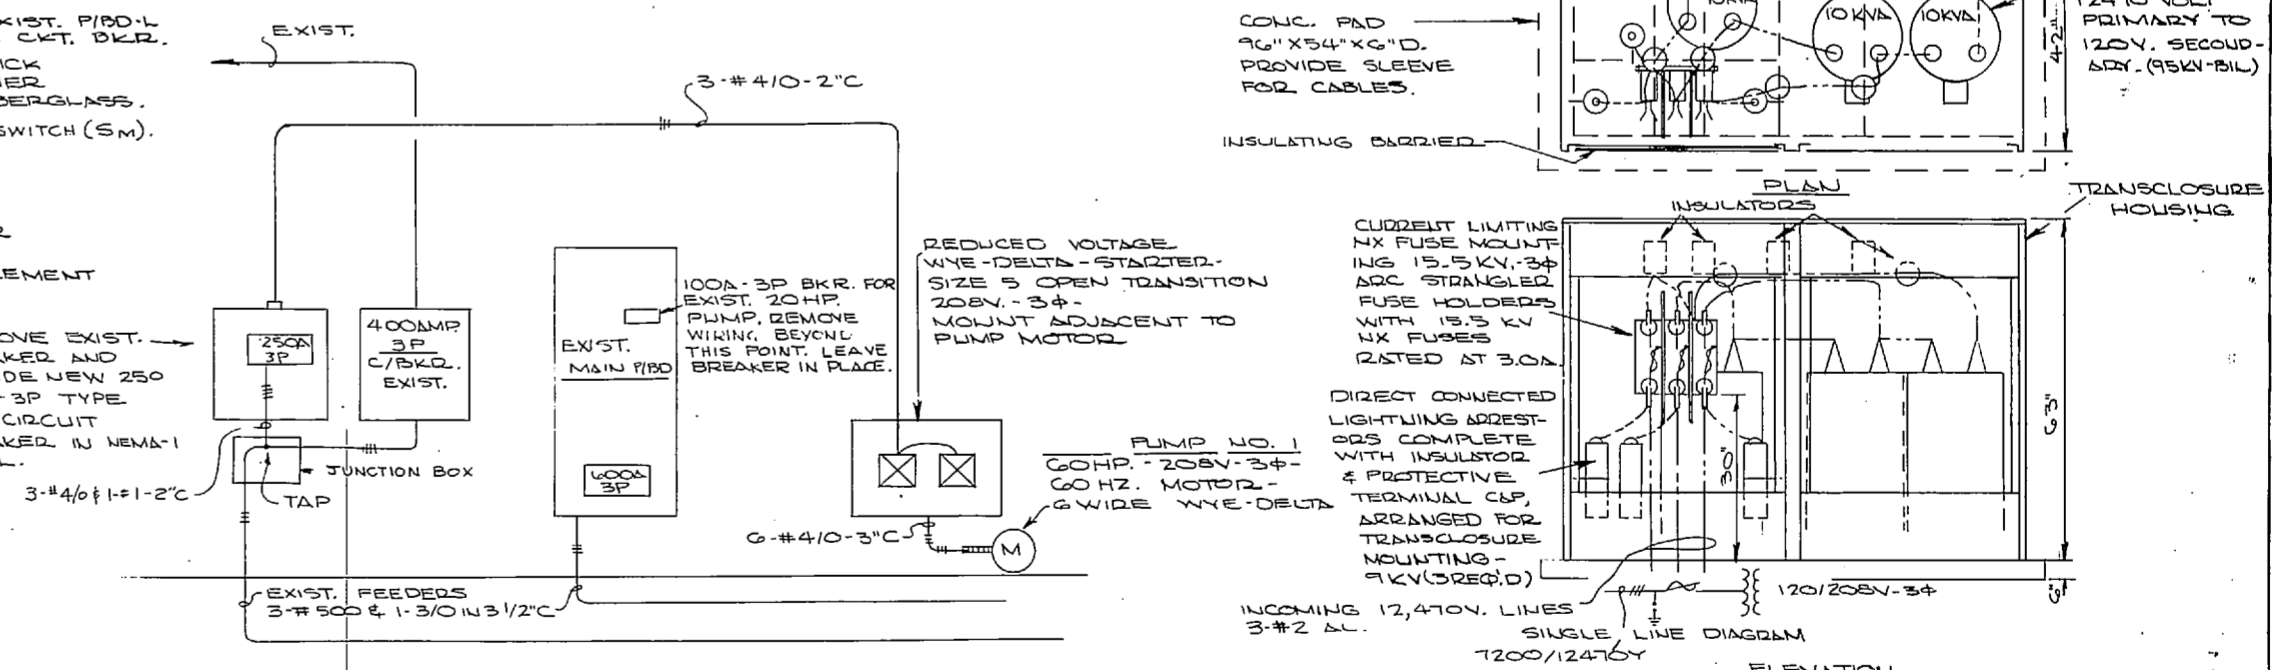 XIST. P/BD-L
CKT. BKR.
ICK
IER
BERGLASS.
SWITCH (SM).
R
EMENT
OVE EXIST.
KER AND
DE NEW 250
-3P TYPE
CIRCUIT
KER IN NEMA-1
L.
EXIST.
3-#4/0-2"C
250A
3P
400AMP.
3P
C/BKR.
EXIST.
JUNCTION BOX
3-#4/0 & 1-#1-2"C
TAP
EXIST.
MAIN P/BD
100A-3P BKR. FOR
EXIST. 20HP.
PUMP. REMOVE
WIRING BEYOND
THIS POINT. LEAVE
BREAKER IN PLACE.
600A
3P
REDUCED VOLTAGE
WYE-DELTA-STARTER-
SIZE 5 OPEN TRANSITION
208V.-3φ-
MOUNT ADJACENT TO
PUMP MOTOR
PUMP NO. 1
60HP.-208V-3φ-
60HZ. MOTOR-
6 WIRE WYE-DELTA
6-#4/0-3"C
M
EXIST. FEEDERS
3-#500 & 1-3/0 IN 3 1/2"C
CONC. PAD
96"X54"X6"D.
PROVIDE SLEEVE
FOR CABLES.
INSULATING BARRIER
10KVA
10KVA
10KVA
42"
12470 VOLT
PRIMARY TO
120V. SECOND-
ARY-(95KV-BIL)
PLAN
INSULATORS
TRANSCLOSURE
HOUSING
CURRENT LIMITING
NX FUSE MOUNT-
ING 15.5KV.-3φ
ARC STRANGLER
FUSE HOLDERS
WITH 15.5 KV
NX FUSES
RATED AT 3.0A.
DIRECT CONNECTED
LIGHTNING ARREST-
ORS COMPLETE
WITH INSULATOR
& PROTECTIVE
TERMINAL CAP,
ARRANGED FOR
TRANSCLOSURE
MOUNTING-
9KV (3REQ'D)
30"
63"
6"
INCOMING 12,470V. LINES
3-#2 AL.
120/208V-3φ
SINGLE LINE DIAGRAM
7200/12470Y
ELEVATION